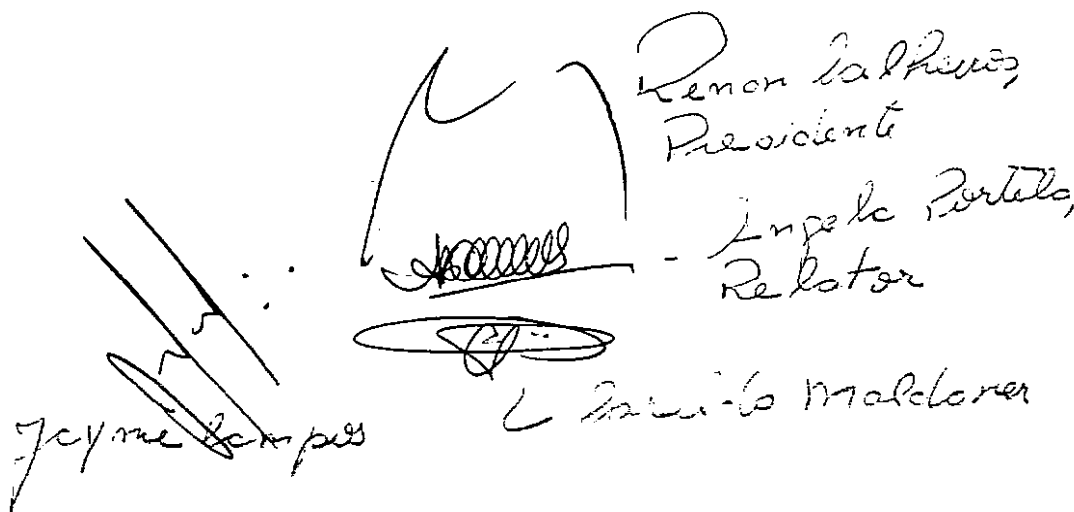 Renan Calheiros,
Presidente
- Angela Portela,
Relator
Casildo Maldaner
Jayme Campos